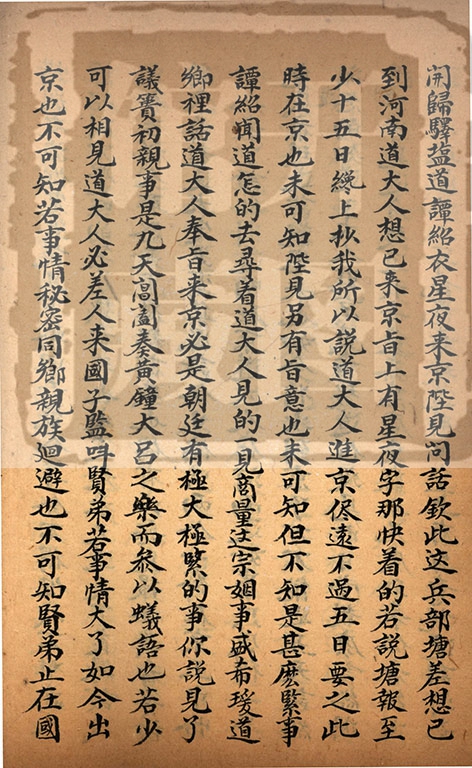 開歸驛塩道譚紹衣星夜来京陛見问話欽此这兵部塘差想已
到河南道大人想已来京旨上有星夜字那快着的若説塘報至
少十五日纔上抄我所以説道大人進京侭遠不過五日要之此
時在京也未可知陛見另有旨意也未可知但不知是甚麽緊事
譚紹聞道怎的去尋着道大人見的一見商量这宗姻事盛希瑗道
鄉裡話道大人奉旨来京必是朝廷有極大極緊的事你説見了
議簣初親事是九天高闔奏黄鐘大吕之樂而叅以蟻語也若少
可以相見道大人必差人来國子監呌賢弟若事情大了如今出
京也不可知若事情秘密同鄉親族廻避也不可知賢弟止在國